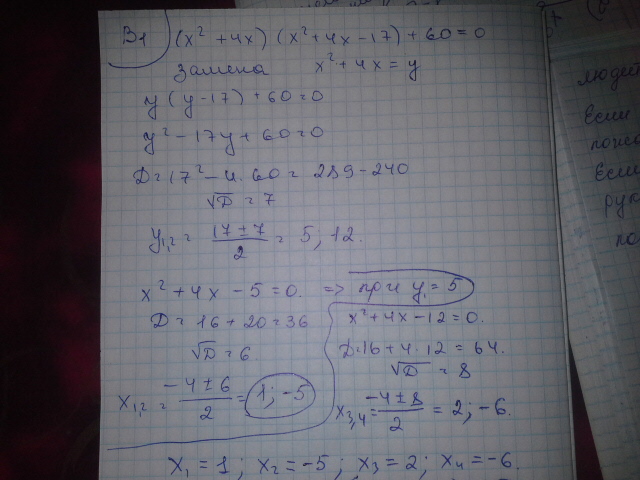 В1 (x² + 4x) (x² + 4x - 17) + 60 = 0
Замена x² + 4x = y
y (y - 17) + 60 = 0
y² - 17y + 60 = 0
D = 17² - 4 · 60 = 289 - 240
√D = 7
y₁,₂ = (17 ± 7)/2 = 5; 12.
x² + 4x - 5 = 0. => при y₁ = 5
D = 16 + 20 = 36
√D = 6.
x₁,₂ = (-4 ± 6)/2 = 1; -5
x² + 4x - 12 = 0.
D = 16 + 4 · 12 = 64.
√D = 8
x₃,₄ = (-4 ± 8)/2 = 2; -6.
x₁ = 1; x₂ = -5; x₃ = 2; x₄ = -6.
людей
Если
Если